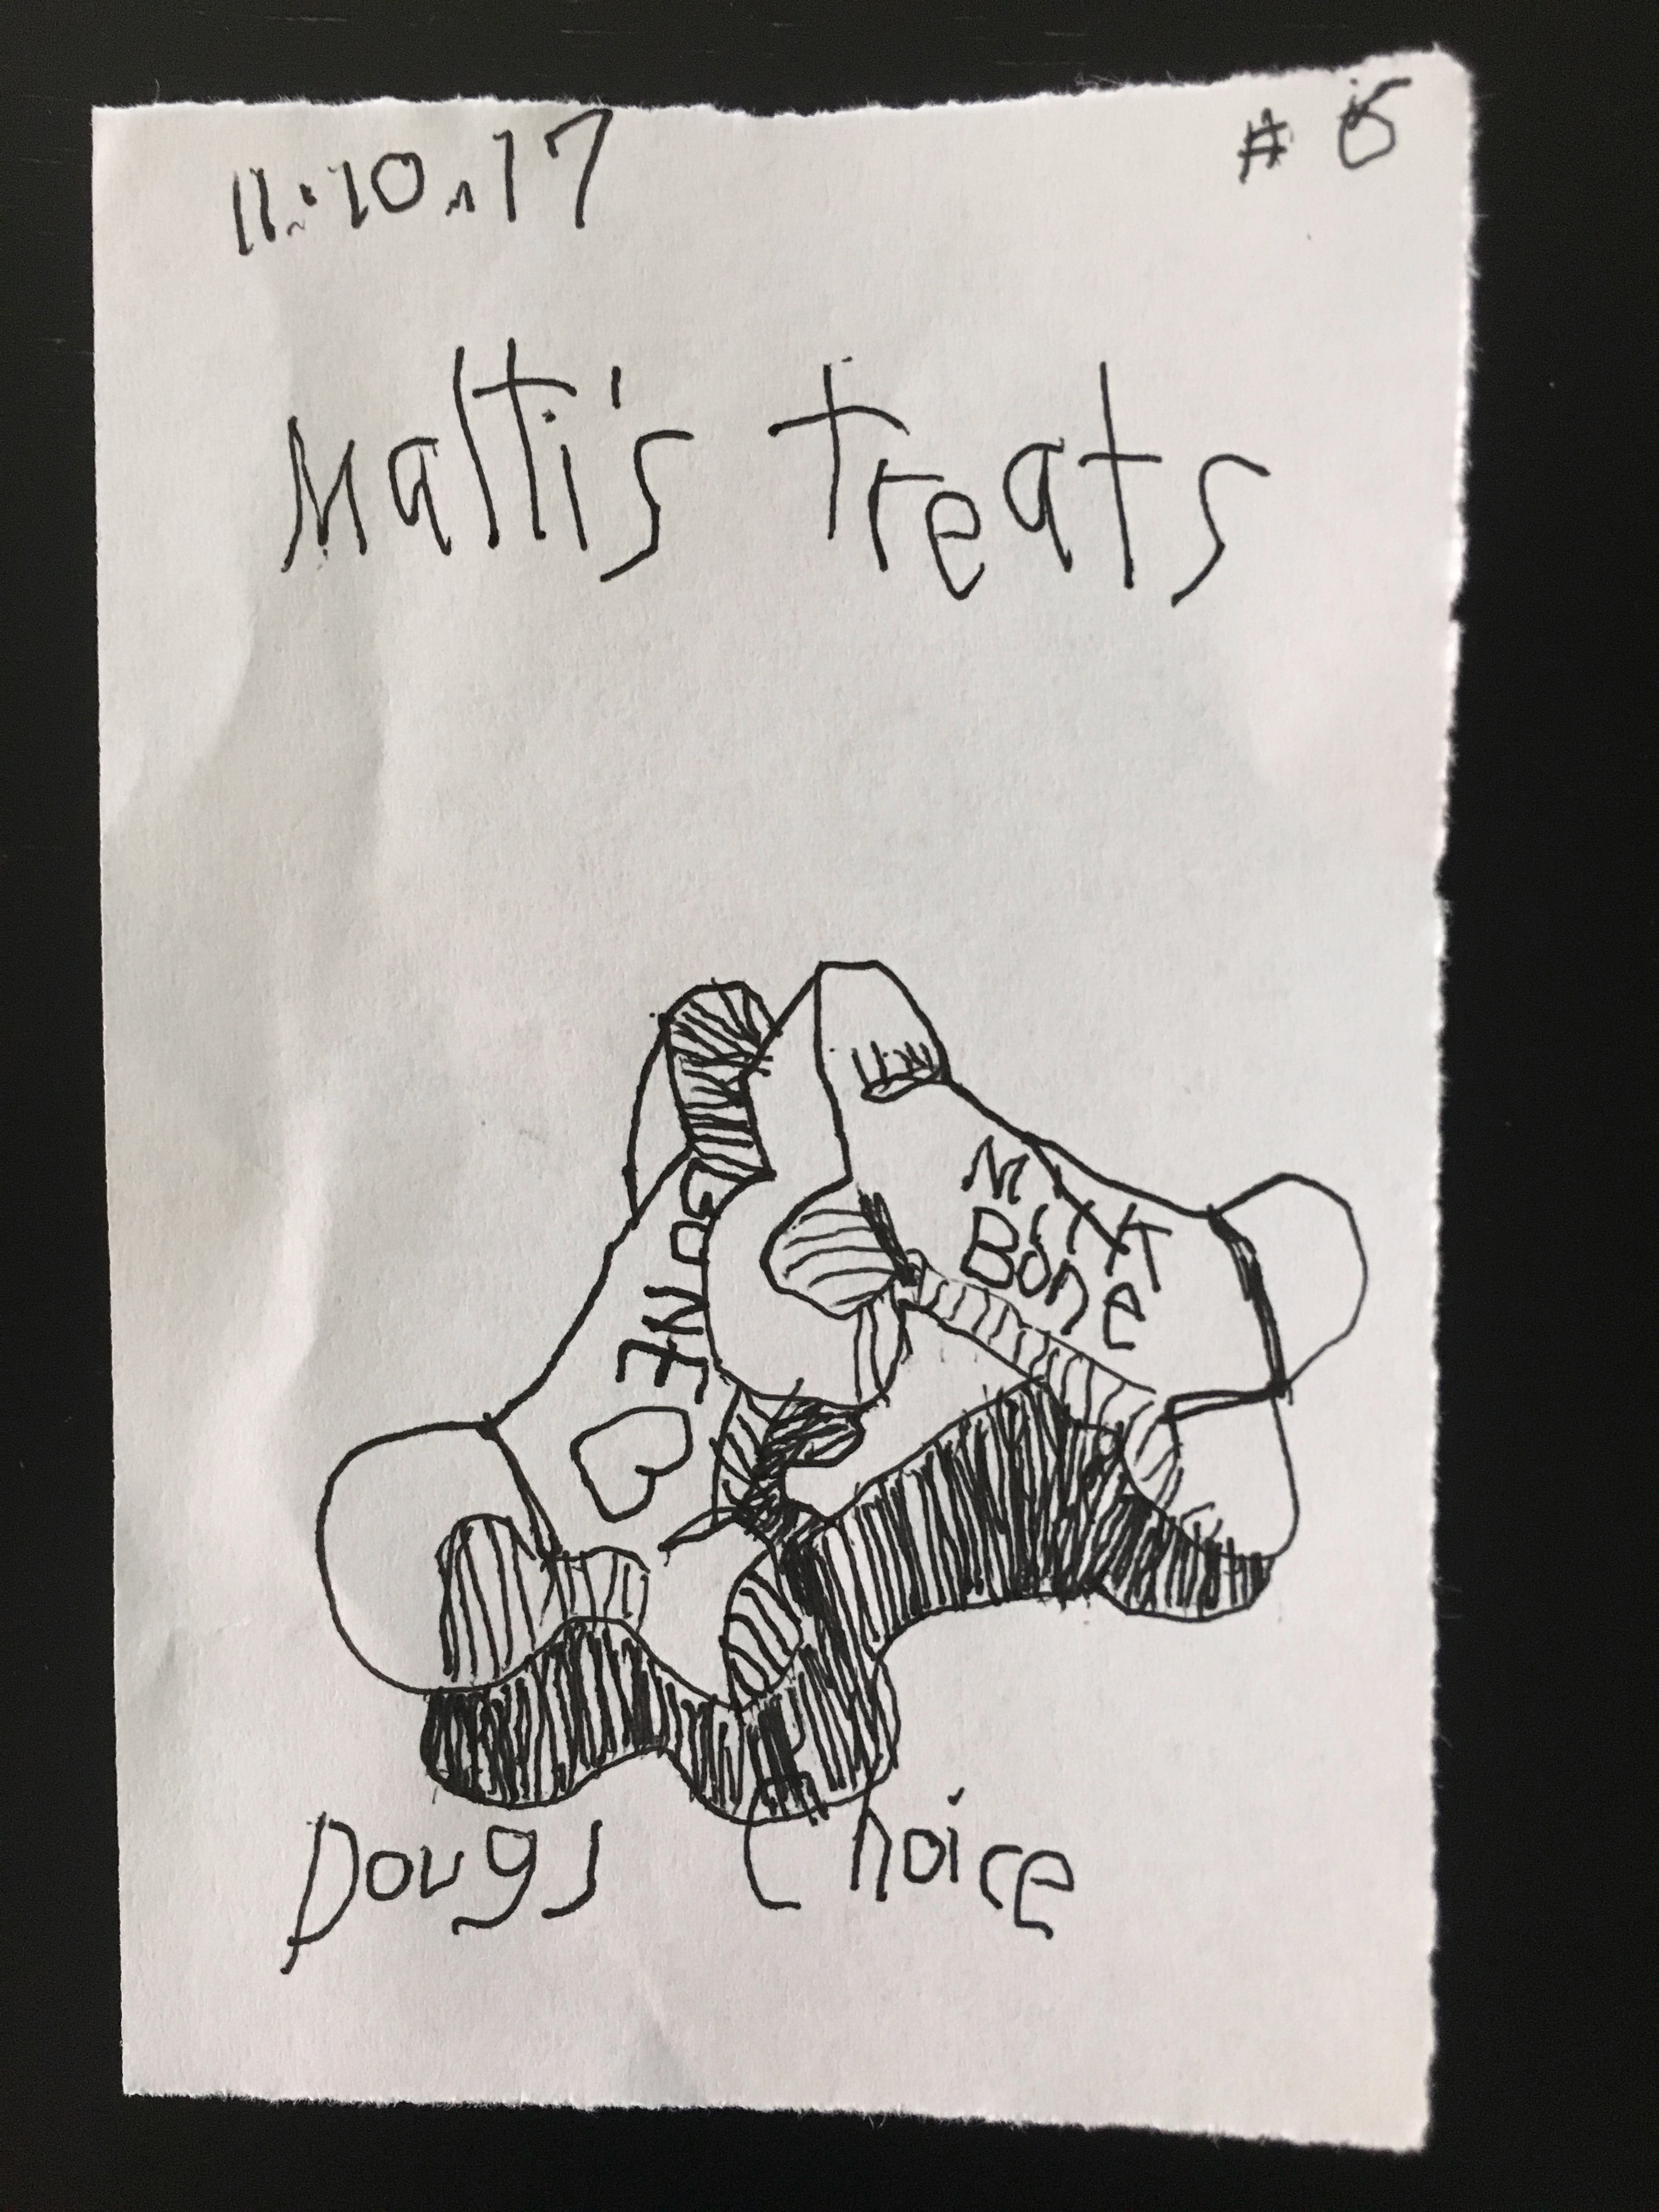 11.10.17
Malti's Treats
MiXT
Bone
BONE
Dougs Choice